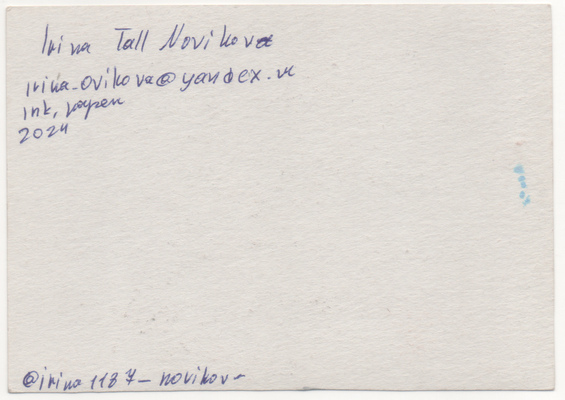 Irina Tall Novikova
irina-ovikova@yandex.ru
ink, paper
2024
@irina1187-novikov-